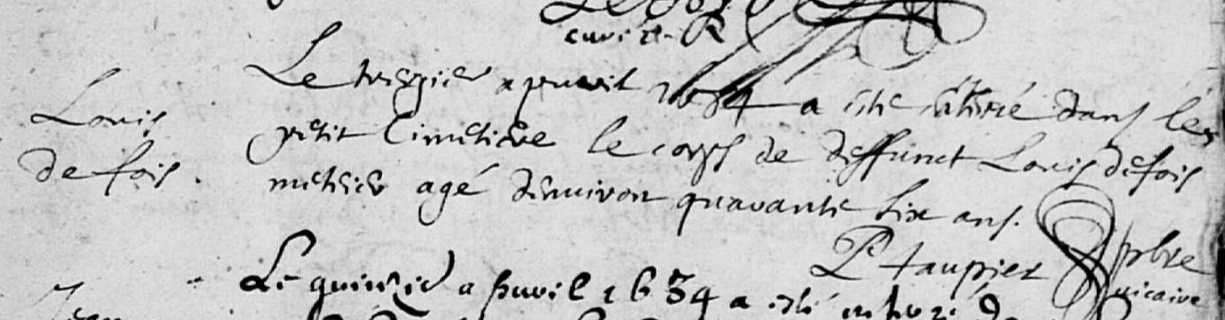 curé
Louis
de fois.
Le apuvril 1634 a esté enterré dans les
petit Cimetiere le corps de deffunct Louis defois
mestier agé denuiron quarante six ans.
P taupier pbre
uicaire
Le quinzie apuvril 1634 a esté enterré
Jean